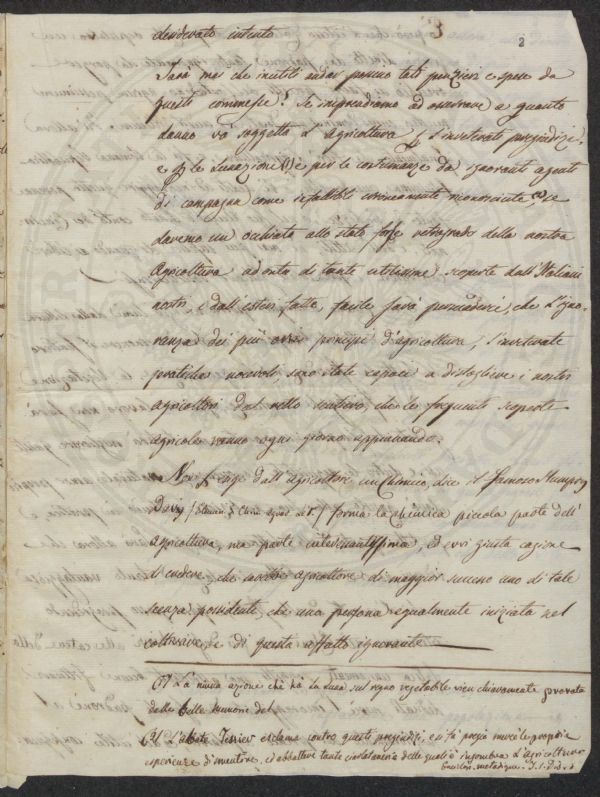 desiderato intento
2
Sarà mai che inutili andar possano tali pensieri e spese da
queste commesse? Se imprendiamo ad osservare a quanto
danno và soggetta l'agricoltura, l'inveterati pregiudizi,
e le Lunazione (1) e per le costumanze da ignoranti agenti
di campagna come infallibile riconosciute (2), se
daremo un occhiata allo stato forse retrogrado della nostra
Agricoltura ad onta di tante utilissime scoperte dall'Italiani
nostri, e dall'esteri fatte, facile sarà persuadersi, che l'igno-
ranza dei più ovvi principj d'agricoltura, l'inveterate
pratiche nocevoli, sono state capaci a distogliere i nostri
agricoltori dal retto sentiero, che le frequenti scoperte
agricole vanno ogni giorno appianando.
Non esige dall'agricoltore un Chimico, dice il famoso Humprey
Davy / Elemen: Chim: agrar: / forma la chimica piccola parte dell'
agricoltura, ma parte interessantissima, ed evvi giusta cagione
di credere, che sarà agricoltore di maggior successo uno di tale
scienza possidente, che una persona egualmente iniziata nel
coltivare, e di questa affatto ignorante
(1) La niuna azione che hà la Luna sul regno vegetabile vien chiaramente provata
dalle belle memorie del
(2) L'abate Tessier esclama contro questi pregiudizi, e si fà pregio mercè le proprie
esperienze di smentire, ed abbattere tante ciarlatanerie delle quali è ingombra l'agricoltura
Enciclop. metodique. T. 1.